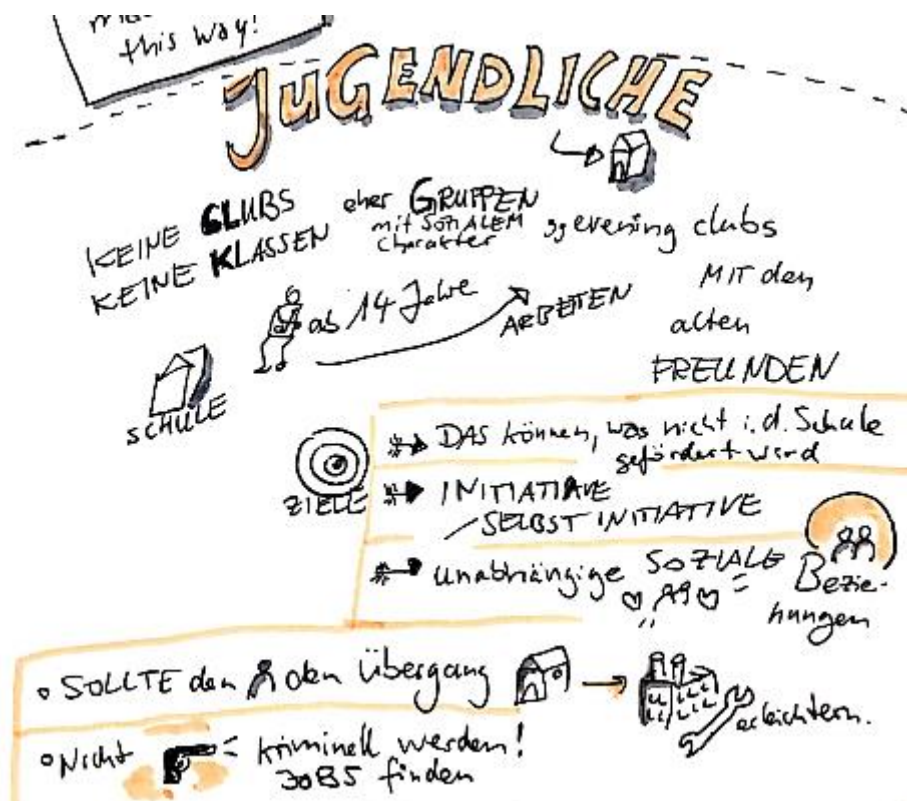 this way!
JUGENDLICHE
KEINE CLUBS
KEINE KLASSEN
eher GRUPPEN
mit SOZIALEM
Charakter
evening clubs
MIT den
alten
FREUNDEN
ab 14 Jahre
ARBEITEN
SCHULE
ZIELE
DAS können, was nicht i.d. Schule
gefördert wird
INITIATIVE
/SELBSTINITIATIVE
unabhängige SOZIALE
Bezie-
hungen
SOLLTE den den Übergang
erleichtern.
Nicht kriminell werden!
JOBS finden